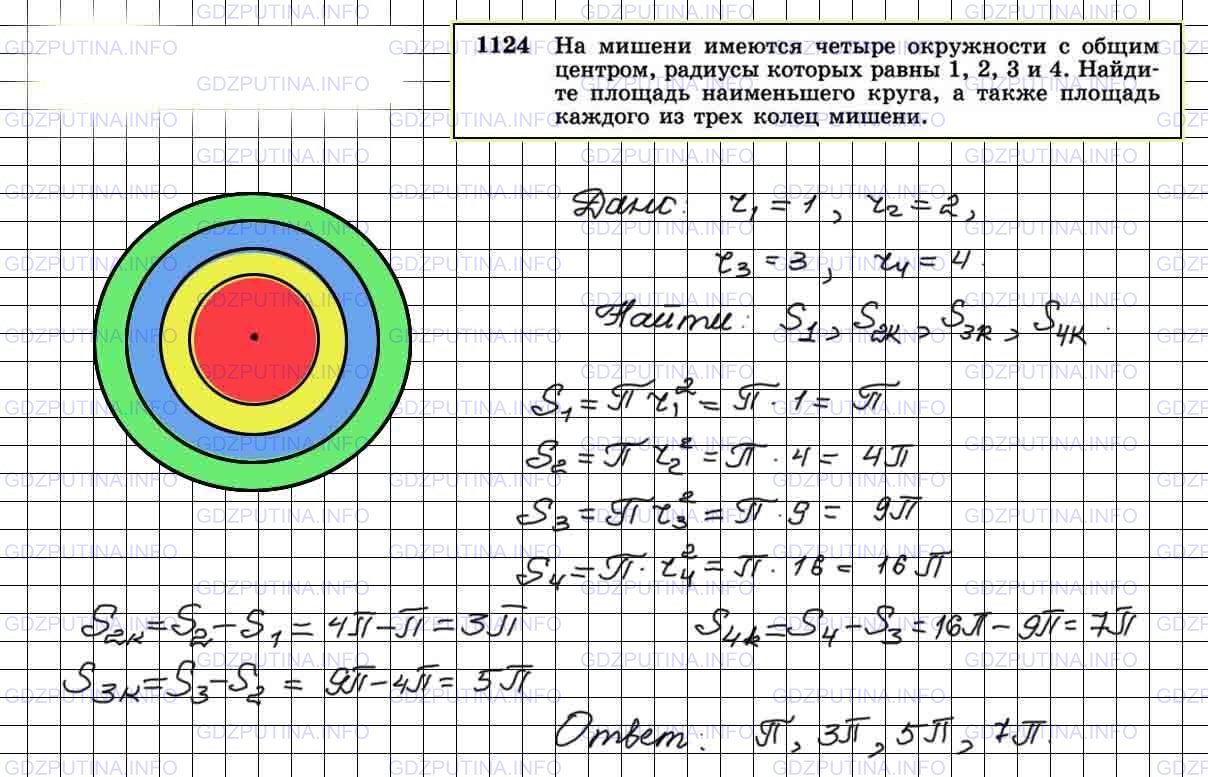 1124 На мишени имеются четыре окружности с общим
центром, радиусы которых равны 1, 2, 3 и 4. Найди-
те площадь наименьшего круга, а также площадь
каждого из трех колец мишени.
Дано: r₁ = 1, r₂ = 2,
r₃ = 3, r₄ = 4.
Найти: S₁, S₂ₖ, S₃ₖ, S₄ₖ.
S₁ = П r₁² = П · 1 = П
S₂ = П r₂² = П · 4 = 4П
S₃ = П r₃² = П · 9 = 9П
S₄ = П · r₄² = П · 16 = 16 П
S₂ₖ = S₂ – S₁ = 4П – П = 3П
S₄ₖ = S₄ – S₃ = 16П – 9П = 7П
S₃ₖ = S₃ – S₂ = 9П – 4П = 5П
Ответ: П, 3П, 5П, 7П.
GDZPUTINA.INFO